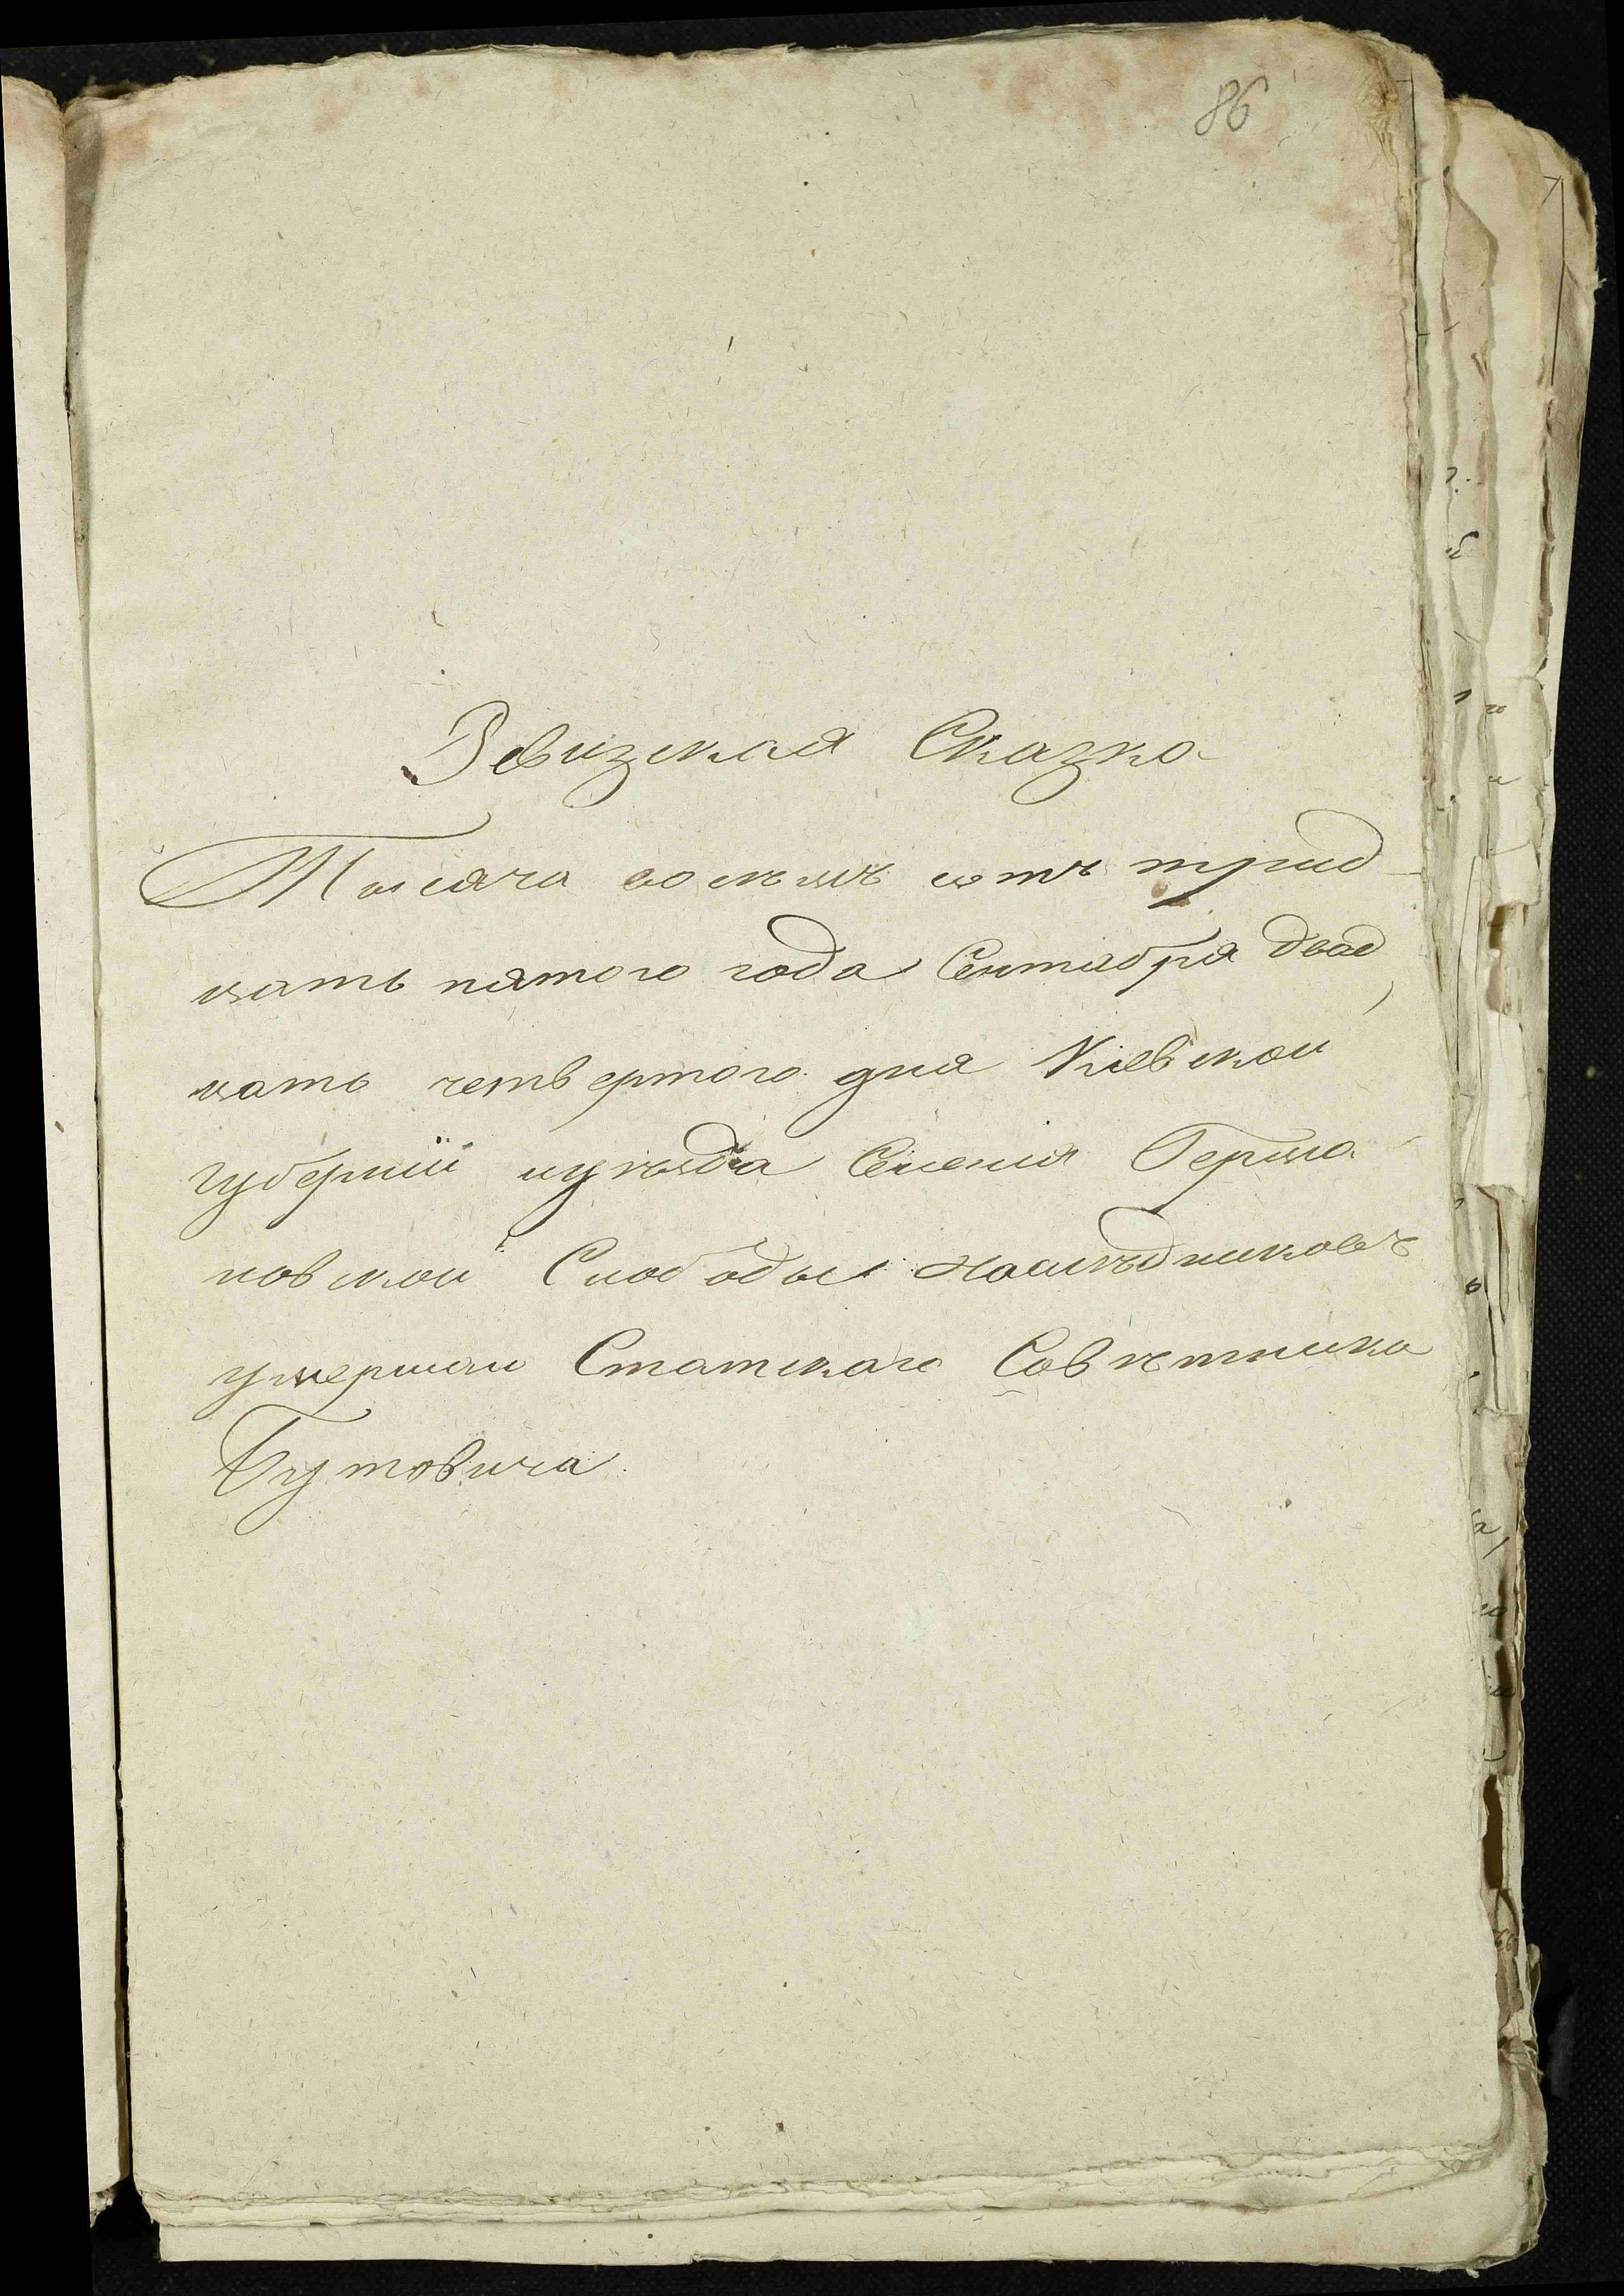 86
Ревизская Сказка
Тысяча восѣмъ сотъ трид
цать пятого года Сентября двад
цать четвертого дня Кіевской
губерніи иуѣзда Селенія Germa
новской Слободы наслѣдниковъ
умершаи Статскаго Совѣтника
Бутовича